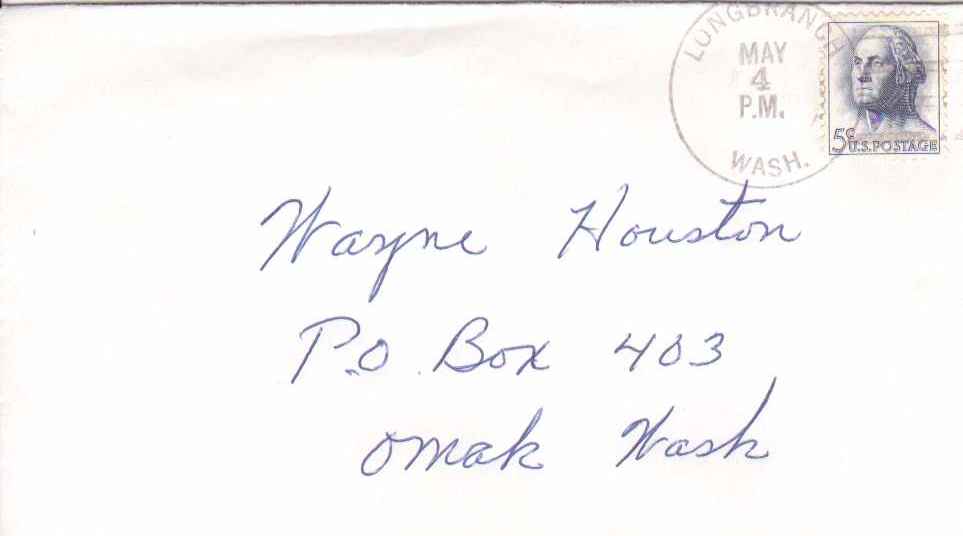 LONGBRANCH
MAY
4
P.M.
WASH.
5¢
U.S. POSTAGE
Wayne Houston
P.O. Box 403
Omak Wash